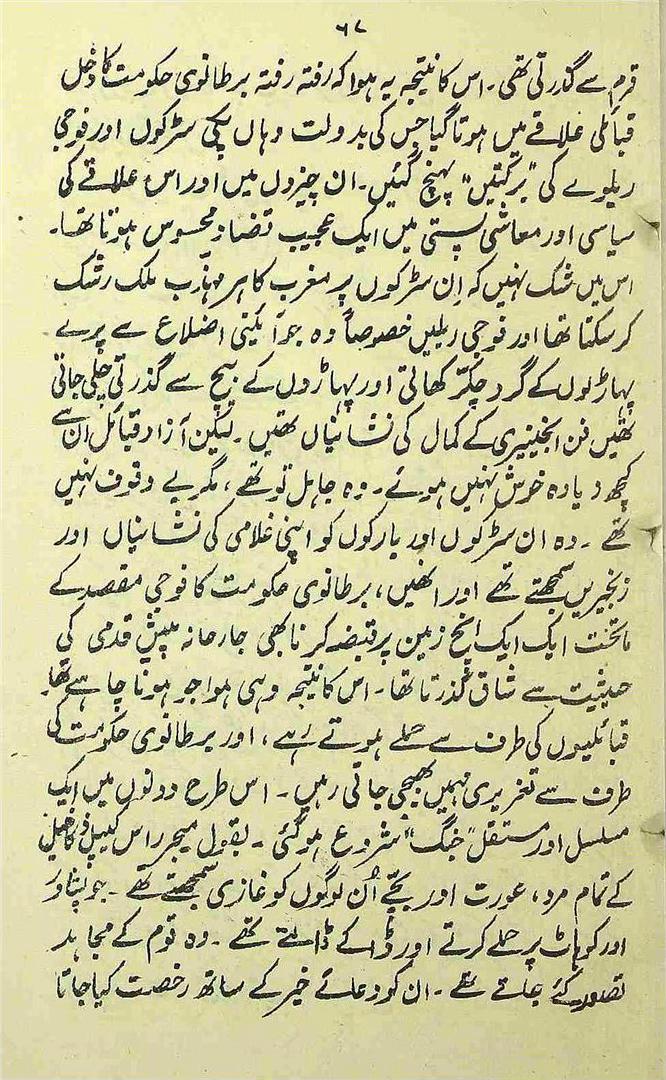 ۶۷
قرم سے گذرتی تھی۔ اس کا نتیجہ یہ ہوا کہ رفتہ رفتہ برطانوی حکومت کا دخل
قبائلی علاقے میں ہوتا گیا جس کی بدولت وہاں پکی سڑکوں اور فوجی
ریلوے کی "برکتیں" پہنچ گئیں۔ ان چیزوں میں اور اس علاقے کی
سیاسی اور معاشی پستی میں ایک عجیب تضاد محسوس ہوتا تھا۔
اس میں شک نہیں کہ اِن سڑکوں پر مغرب کا ہر مہذّب ملک رشک
کر سکتا تھا اور فوجی ریلیں خصوصاً وہ جو آئینی اضلاع سے پرے
پہاڑیوں کے گرد چکّر کھاتی اور پہاڑوں کے بیچ سے گذرتی چلی جاتی
تھیں فن انجینیری کے کمال کی نشانیاں تھیں۔ لیکن آزاد قبائل ان سے
کچھ زیادہ خوش نہیں ہوئے۔ وہ جاہل تو تھے، مگر بے وقوف نہیں
تھے۔ وہ ان سڑکوں اور بارکوں کو اپنی غلامی کی نشانیاں اور
زنجیریں سمجھتے تھے اور انھیں، برطانوی حکومت کا فوجی مقصد کے
ماتحت ایک ایک انچ زمین پر قبضہ کرنا بھی جارحانہ پیش قدمی کی
حیثیت سے شاق گذرتا تھا۔ اس کا نتیجہ وہی ہوا جو ہونا چاہئے تھا۔
قبائلیوں کی طرف سے حملے ہوتے رہے، اور برطانوی حکومت کی
طرف سے تعزیری مہمیں بھیجی جاتی رہیں۔ اس طرح دونوں میں ایک
مسلسل اور مستقل "جنگ" شروع ہو گئی۔ بقول میجر راس کیپل
کے تمام مرد، عورت اور بچّے اُن لوگوں کو غازی سمجھتے تھے۔ جو پشاور
اور کوہاٹ پر حملے کرتے اور ڈاکے ڈالتے تھے۔ وہ قوم کے مجاہد
تصور کئے جاتے تھے۔ ان کو دعائے خیر کے ساتھ رخصت کیا جاتا